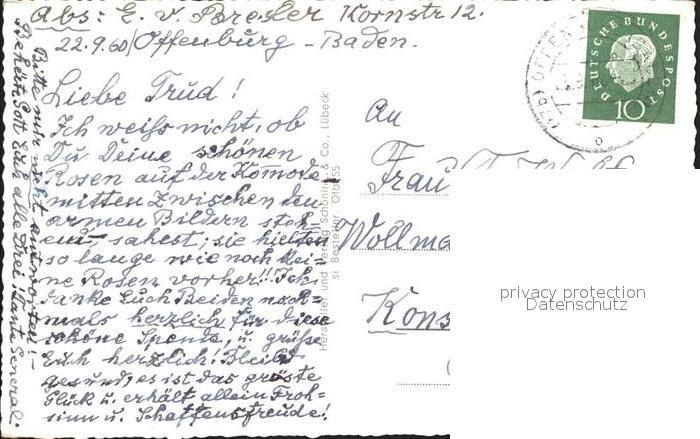 Abs: E. v. Bresler Kornstr 12.
22.9.60/Offenburg - Baden.
Liebe Trud!
Ich weifs nicht, ob
Du Deine schönen
Rosen auf der Komode
mitten zwischen den
armen Bildern steh=
end, sahest; sie hielten
so lange wie noch klei=
ne Rosen vorher!! Ich
danke Euch Beiden noch=
mals herzlich für diese
schöne Spende, u. grüße
Euch herzlich! Bleibt
gesund, es ist das größte
Glück u. erhält allein Froh=
sinn u. Schaffensfreude!
Bitte mir nicht antworten!
Behüte Gott Euch alle Drei! Tant General.
Hersteller und Verlag Schöning & Co., Lübeck
Bestell
An
Frau
Wollma
Kons
DEUTSCHE BUNDESPOST
10
privacy protection
Datenschutz